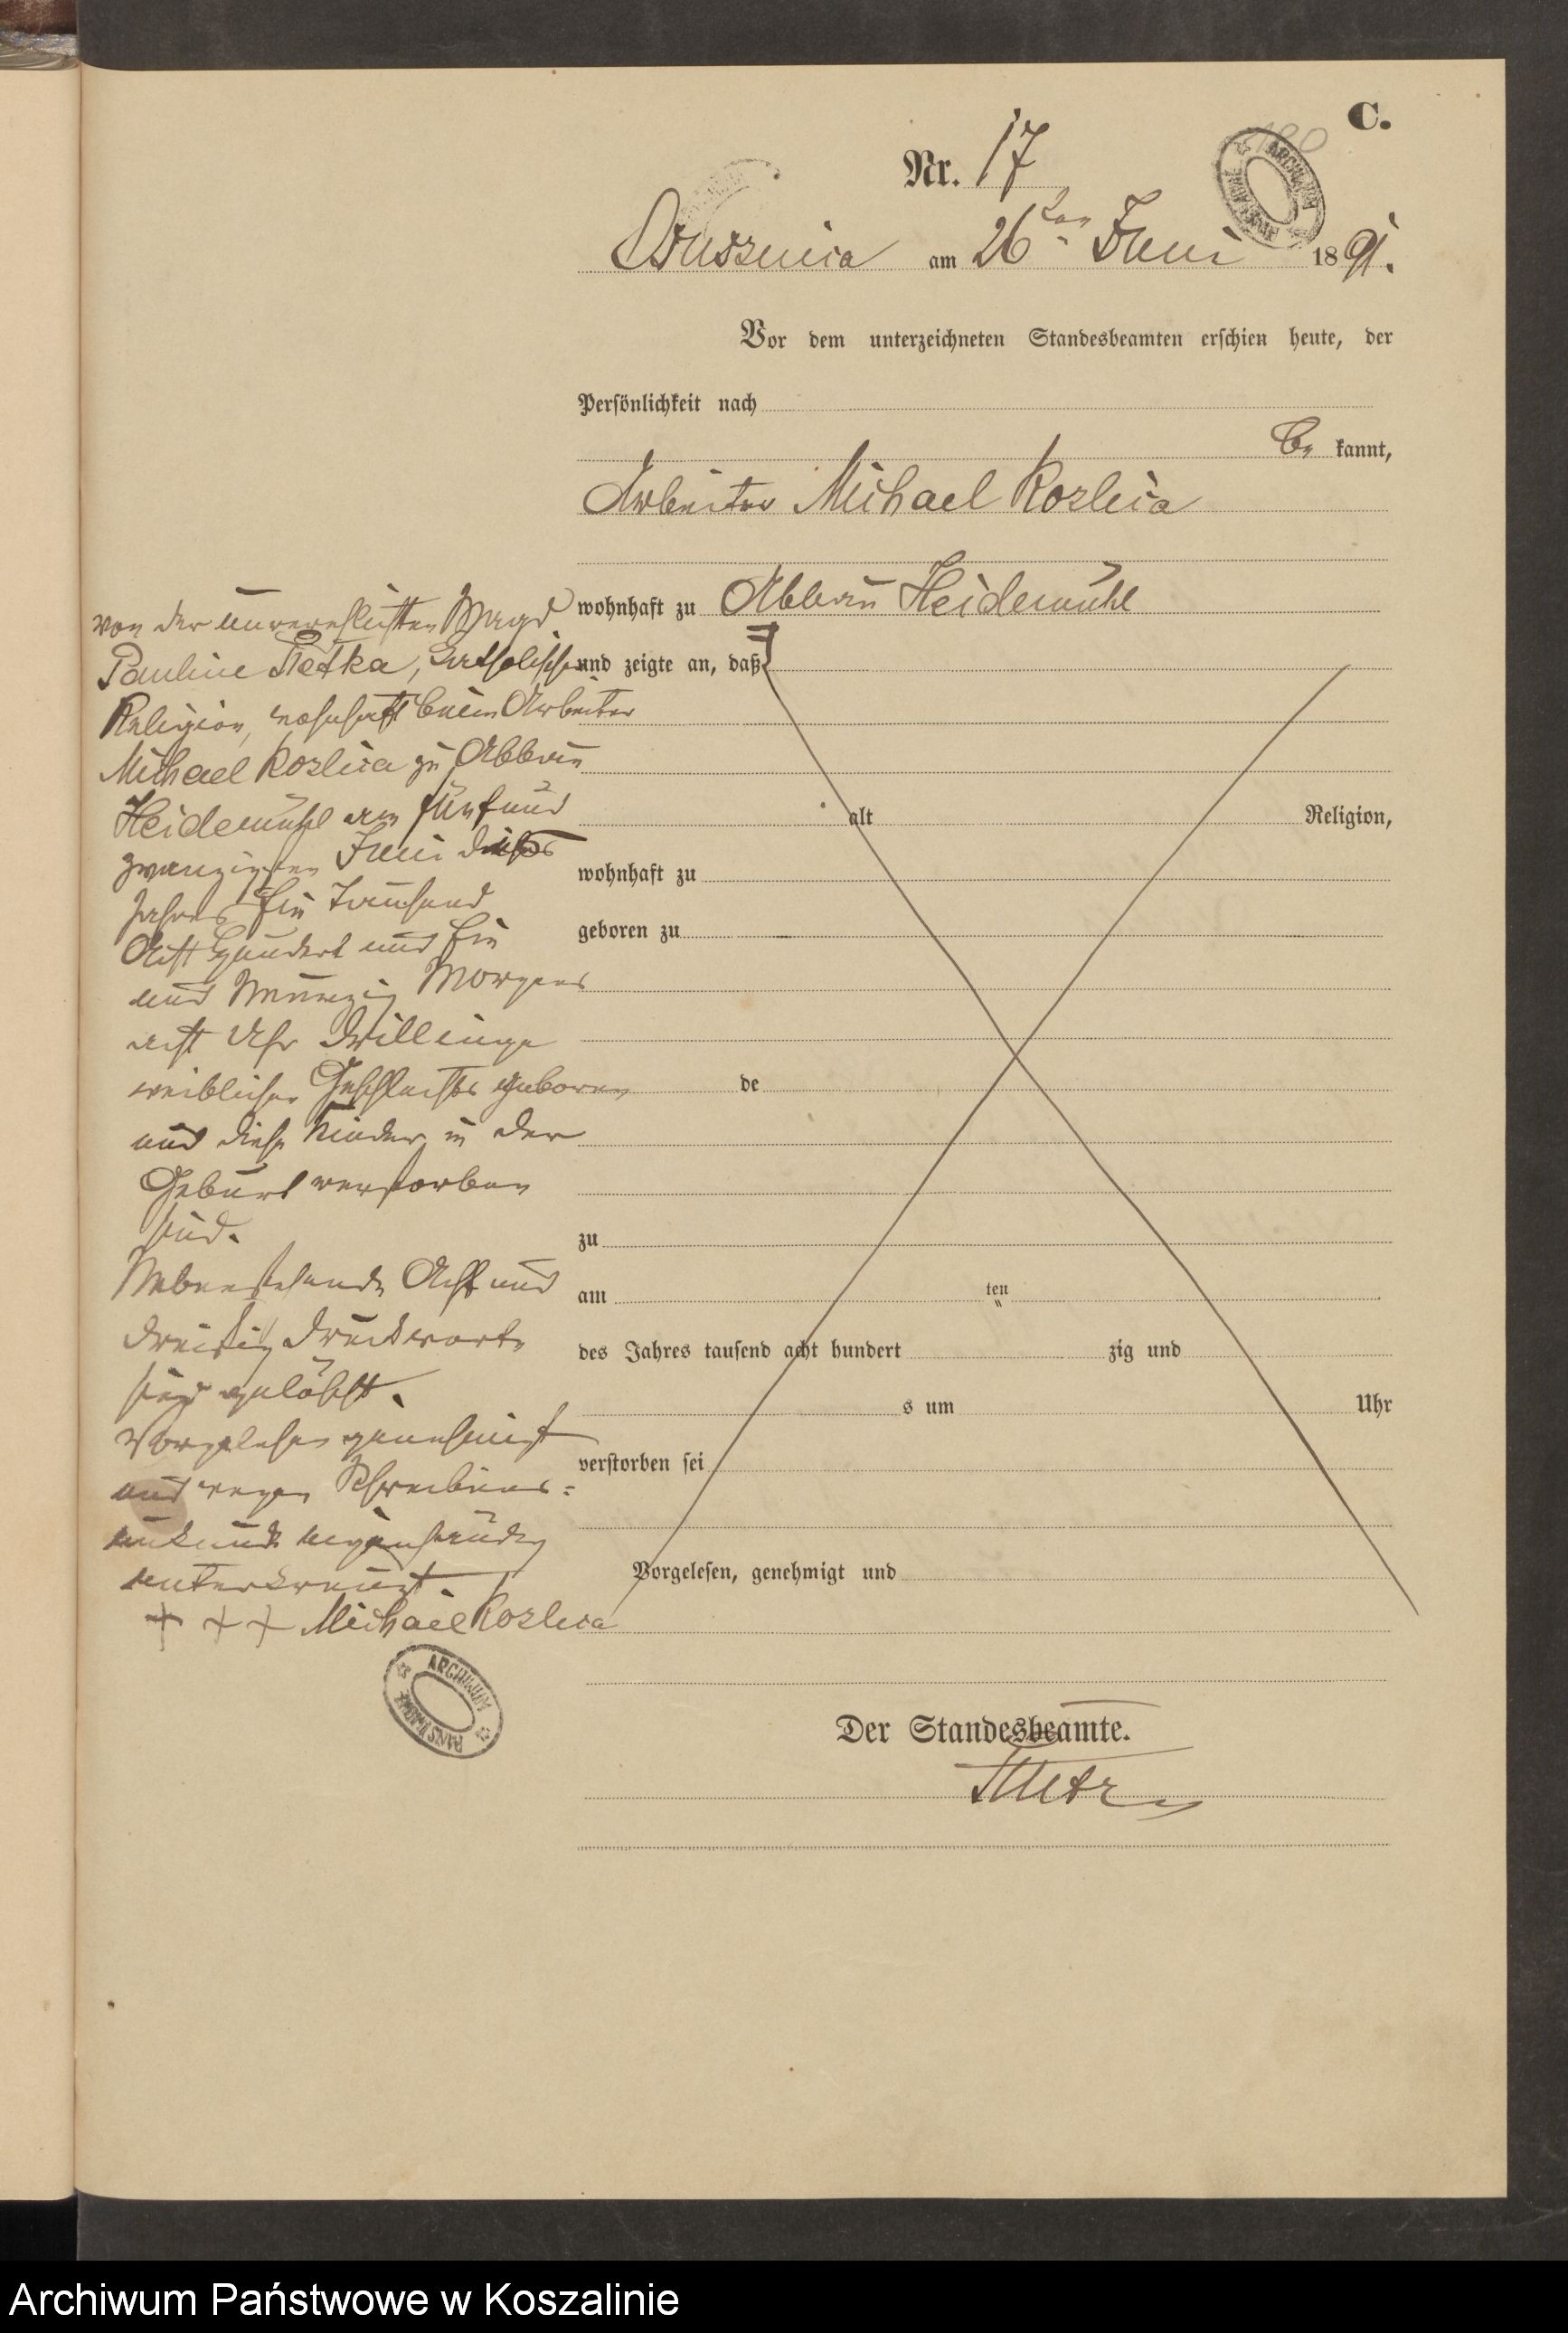 C.
Nr. 17
am 26ten Juni 1891.
Vor dem unterzeichneten Standesbeamten erschien heute, der
Persönlichkeit nach
be kannt,
Arbeiter Michael Kozlica
wohnhaft zu Abbau Heidemühl
und zeigte an, daß
alt Religion,
wohnhaft zu
geboren zu
de
zu
am ten
des Jahres tausend acht hundert zig und
s um Uhr
verstorben sei
Vorgelesen, genehmigt und
von der unverehelichten Magd
Pauline, katholischer
Religion, wohnhaft beim Arbeiter
Michael Kozlica zu Abbau
Heidemühl am fünfund
zwanzigsten Juni dieses
Jahres Ein Tausend
Acht Hundert und Ein
und Neunzig Morgens
acht Uhr Drillinge
weiblichen Geschlechts geboren
und diese Kinder in der
Geburt verstorben
sind.
Nebenstehende Acht und
dreißig Druckworte
sind gelöscht.
Vorgelesen genehmigt
und wegen Schreibens=
unkunde
unterkreuzt.
+ + + Michael Kozlica
ARCHIWUM PAŃSTWOWE
Der Standesbeamte.
Archiwum Państwowe w Koszalinie